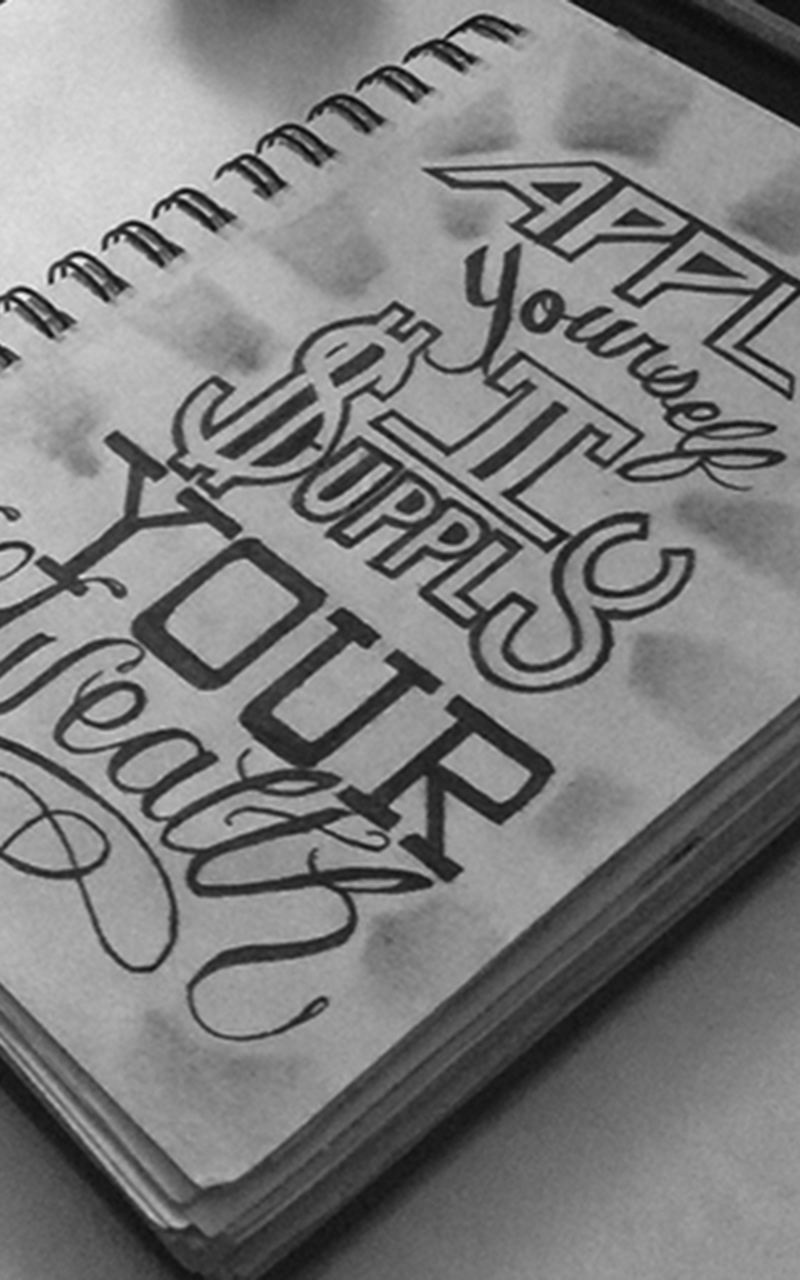 APPL
Yourself
IT
$UPPLS
YOUR
Wealth